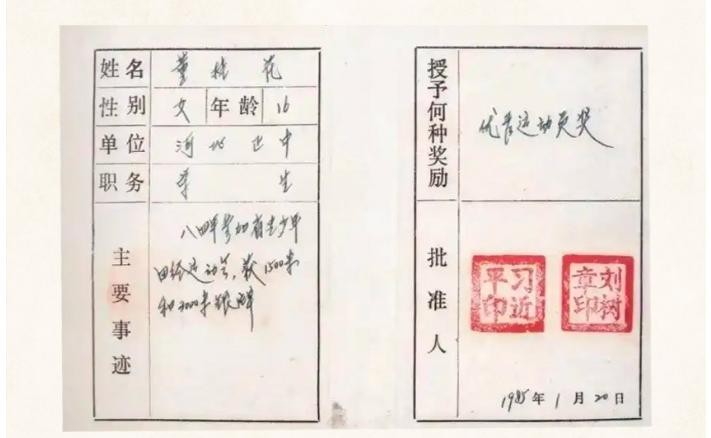 姓名 董 花
性别 女 年龄 16
单位 河北正中
职务 学生
主要事迹
八四年参加省青少年
田径运动会,获1500米
和3000米银牌
授予何种奖励
优秀运动员奖
批准人
习近平印
刘树章印
1985年1月20日